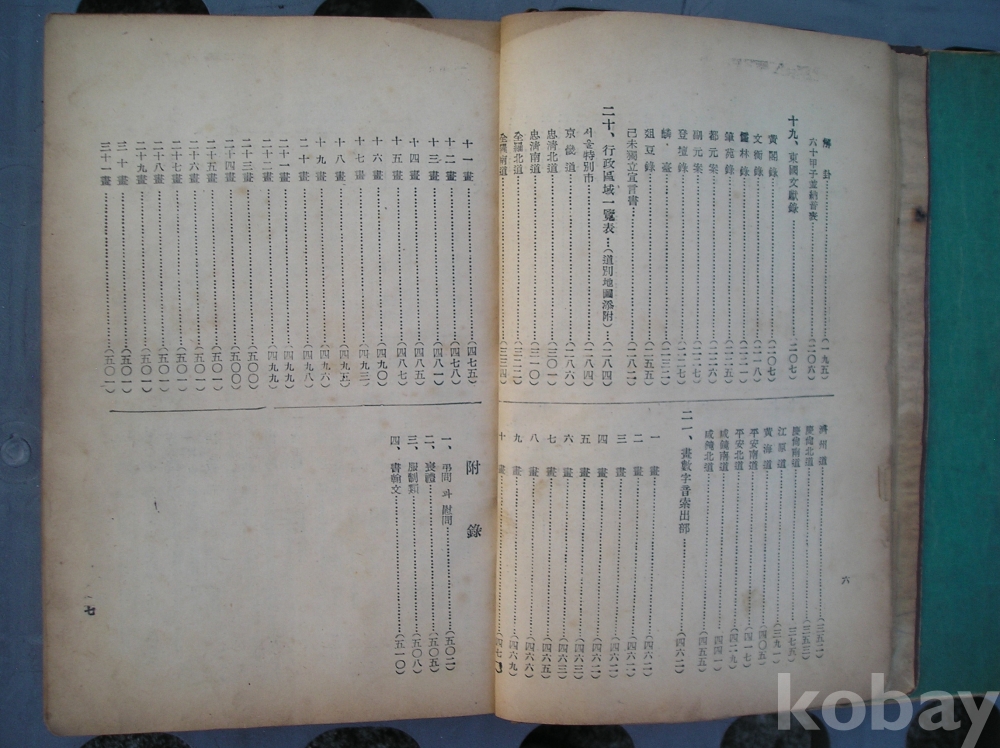 解卦……(一九五)
六十甲子並納音表……(二〇六)
十九、東國文獻錄……(二〇七)
黃閣錄……(二〇七)
文衡錄……(二一八)
儒林錄……(二二一)
筆苑錄……(二二五)
都元案……(二二六)
副元案……(二二七)
登壇錄……(二二七)
麟臺……(二三二)
俎豆錄……(二五五)
己未獨立宣言書……(二八二)
二十、行政區域一覽表…(道別地圖添附)…(二八四)
서울特別市……(二八四)
京畿道……(二八六)
忠淸北道……(三〇一)
忠淸南道……(三一〇)
全羅北道……(三二二)
全羅南道……(三三四)
濟州道……(三五二)
慶尙北道……(三五三)
慶尙南道……(三七五)
江原道……(三九一)
黃海道……(四〇五)
平安南道……(四一七)
平安北道……(四二九)
咸鏡南道……(四四一)
咸鏡北道……(四五五)
二一、畫數字音索出部……(四六二)
一畫……(四六二)
二畫……(四六二)
三畫……(四六二)
四畫……(四六二)
五畫……(四六三)
六畫……(四六三)
七畫……(四六五)
八畫……(四六六)
九畫……(四六九)
十畫……(四七
六
十一畫……(四七五)
十二畫……(四七八)
十三畫……(四八一)
十四畫……(四八四)
十五畫……(四八七)
十六畫……(四九〇)
十七畫……(四九三)
十八畫……(四九五)
十九畫……(四九六)
二十畫……(四九八)
二十一畫……(四九九)
二十二畫……(四九九)
二十三畫……(五〇〇)
二十四畫……(五〇〇)
二十五畫……(五〇一)
二十六畫……(五〇一)
二十七畫……(五〇一)
二十九畫……(五〇一)
三十畫……(五〇一)
三十一畫……(五〇一)
附錄
一、弔問와 慰問……(五〇二)
二、喪禮……(五〇五)
三、服制類……(五〇八)
四、書翰文……(五一〇)
七
kobay